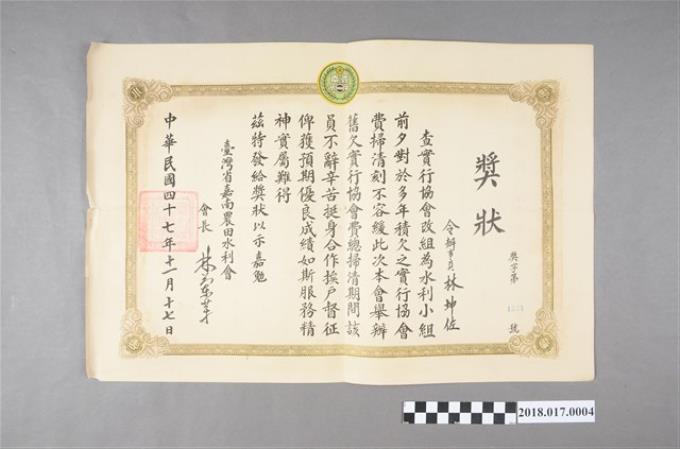 獎狀
獎字第
號
令辦事員林坤佐
查實行協會改組為水利小組
前夕對於多年積欠之實行協會
費掃清刻不容緩此次本會舉辦
舊欠實行協會費總掃清期間該
員不辭辛苦挺身合作挨戶督征
俾獲預期優良成績如斯服務精
神實屬難得
茲特發給獎狀以示嘉勉
臺灣省嘉南農田水利會
會長 林蘭芽
中華民國四十七年十一月十七日
2018.017.0004